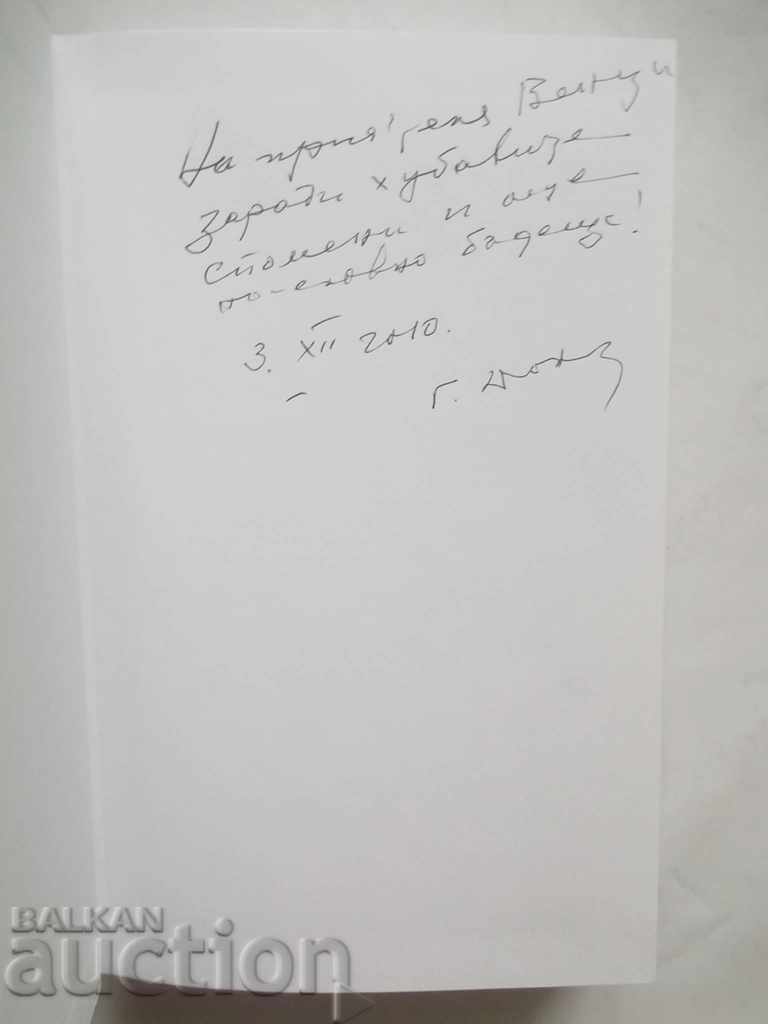 На приятеля Венци
заради хубавите
спомени и още
по-охолно бъдеще!
3. XII 2010.
Г.
BALKAN
auction